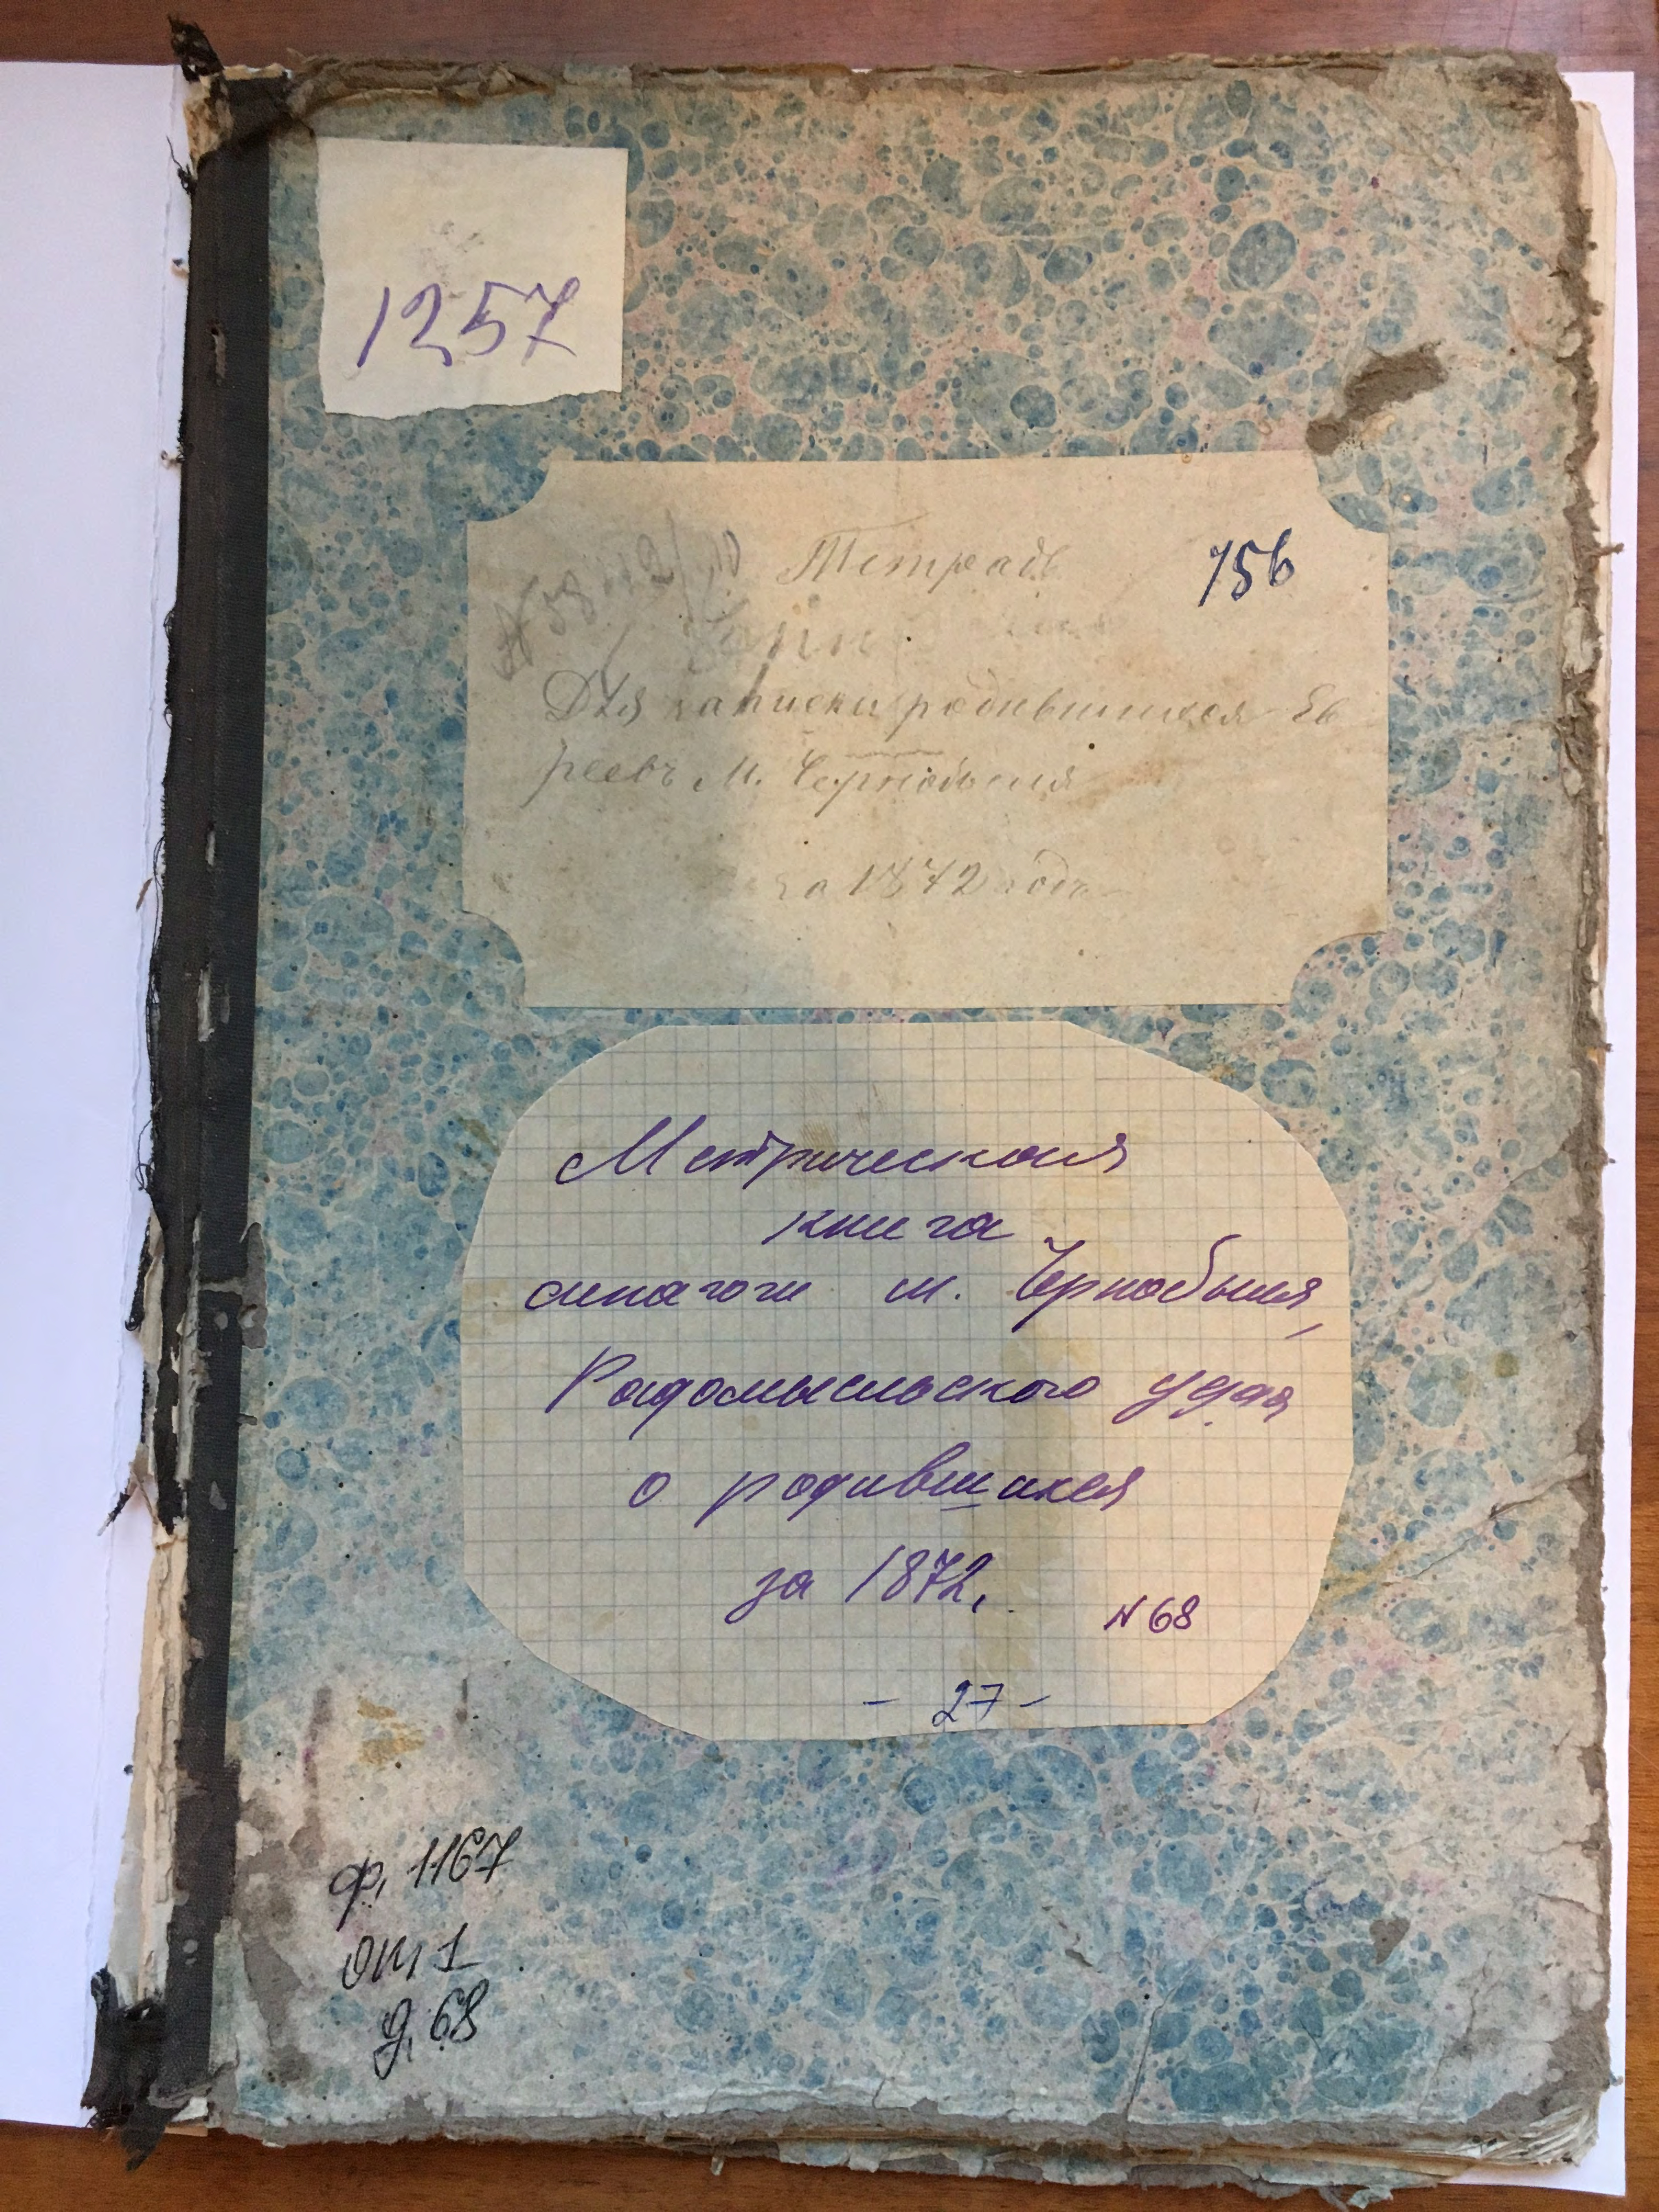 1257
Тетрадь
156
Для записки родившихся Ев
реевъ м. Чернобыля
за 1872 годъ
Метрическая
книга
синагоги м. Чернобыля,
Радомысльского уезда
о родившихся
за 1872.
N 68
- 27 -
ф. 1167
оп 1
д. 68